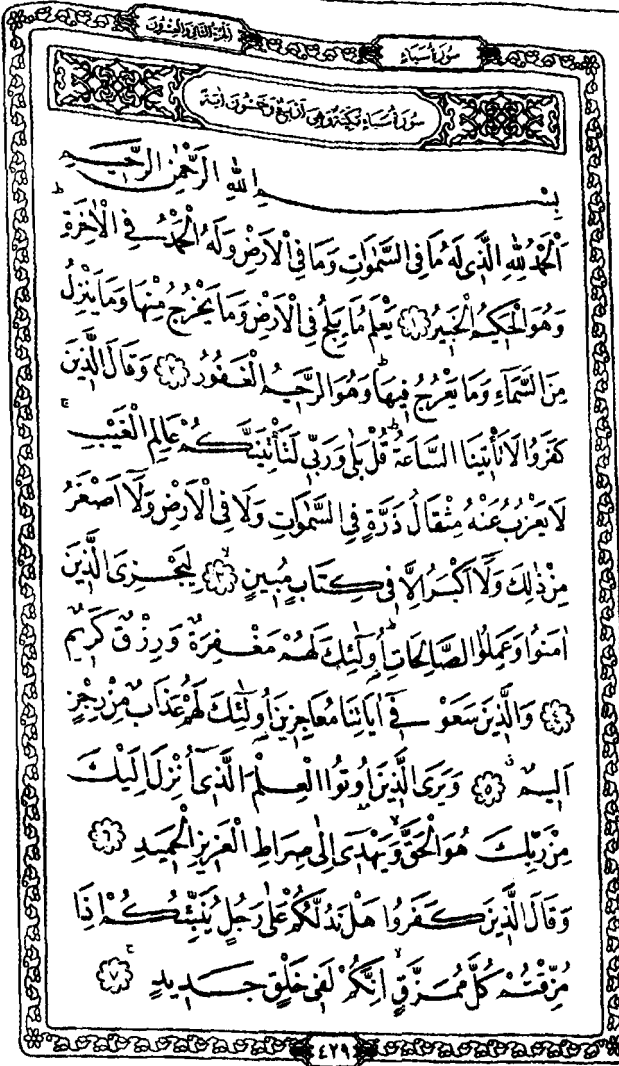 الجزء الثاني والعشرون
سورة سباء
سورة سباء مكية وهي أربع وخمسون آية
بِسْمِ اللّٰهِ الرَّحْمٰنِ الرَّحِيمِ
اَلْحَمْدُ لِلّٰهِ الَّذِي لَهُ مَا فِي السَّمٰوَاتِ وَمَا فِي الْاَرْضِ وَلَهُ الْحَمْدُ فِي الْاٰخِرَةِۜ
وَهُوَ الْحَكِيمُ الْخَبِيرُ ﴿١﴾ يَعْلَمُ مَا يَلِجُ فِي الْاَرْضِ وَمَا يَخْرُجُ مِنْهَا وَمَا يَنْزِلُ
مِنَ السَّمَٓاءِ وَمَا يَعْرُجُ فِيهَاۜ وَهُوَ الرَّحِيمُ الْغَفُورُ ﴿٢﴾ وَقَالَ الَّذِينَ
كَفَرُوا لَا تَأْتِينَا السَّاعَةُۜ قُلْ بَلٰى وَرَبِّي لَتَأْتِيَنَّكُمْ عَالِمِ الْغَيْبِۚ
لَا يَعْزُبُ عَنْهُ مِثْقَالُ ذَرَّةٍ فِي السَّمٰوَاتِ وَلَا فِي الْاَرْضِ وَلَٓا اَصْغَرُ
مِنْ ذٰلِكَ وَلَٓا اَكْبَرُ اِلَّا فِي كِتَابٍ مُبِينٍۙ ﴿٣﴾ لِيَجْزِيَ الَّذِينَ
اٰمَنُوا وَعَمِلُوا الصَّالِحَاتِۜ اُو۬لٰٓئِكَ لَهُمْ مَغْفِرَةٌ وَرِزْقٌ كَرِيمٌ
﴿٤﴾ وَالَّذِينَ سَعَوْ فِٓي اٰيَاتِنَا مُعَاجِزِينَ اُو۬لٰٓئِكَ لَهُمْ عَذَابٌ مِنْ رِجْزٍ
اَلِيمٌ ﴿٥﴾ وَيَرَى الَّذِينَ اُو۫تُوا الْعِلْمَ الَّذِٓي اُنْزِلَ اِلَيْكَ
مِنْ رَبِّكَ هُوَ الْحَقَّۙ وَيَهْدِٓي اِلٰى صِرَاطِ الْعَزِيزِ الْحَمِيدِ ﴿٦﴾
وَقَالَ الَّذِينَ كَفَرُوا هَلْ نَدُلُّكُمْ عَلٰى رَجُلٍ يُنَبِّئُكُمْ اِذَا
مُزِّقْتُمْ كُلَّ مُمَزَّقٍۙ اِنَّكُمْ لَفِي خَلْقٍ جَدِيدٍۚ ﴿٧﴾
٤٢٩